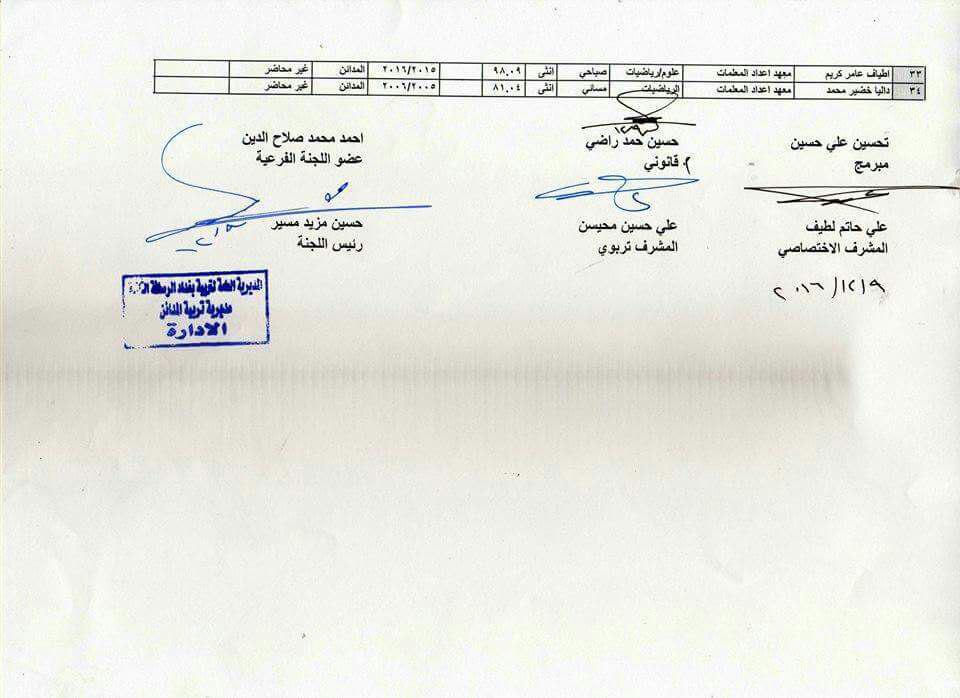 ٣٣ اطياف عامر كريم معهد اعداد المعلمات علوم/رياضيات صباحي انثى ٩٨.٠٩ ٢٠١٦/٢٠١٥ المدائن غير محاضر
٣٤ داليا خضير محمد معهد اعداد المعلمات الرياضيات مسائي انثى ٨١.٠٤ ٢٠٠٦/٢٠٠٥ المدائن غير محاضر
تحسين علي حسين حسين حمد راضي احمد محمد صلاح الدين
مبرمج قانوني عضو اللجنة الفرعية
علي حاتم لطيف علي حسين محيسن حسين مزيد مسير
المشرف الاختصاصي المشرف تربوي رئيس اللجنة
٢٠١٦/١٢/٩
المديرية العامة لتربية بغداد الرصافة
مديرية تربية المدائن
الادارة